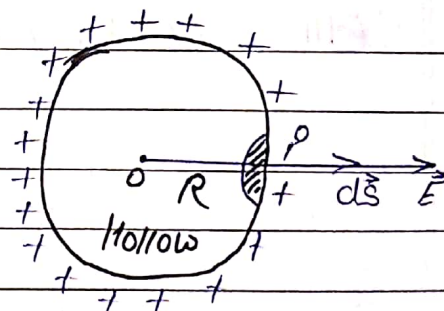 + + + +
+ +
+ P
+ O R + dS⃗ E⃗
+ Hollow
+ +
+ + + +